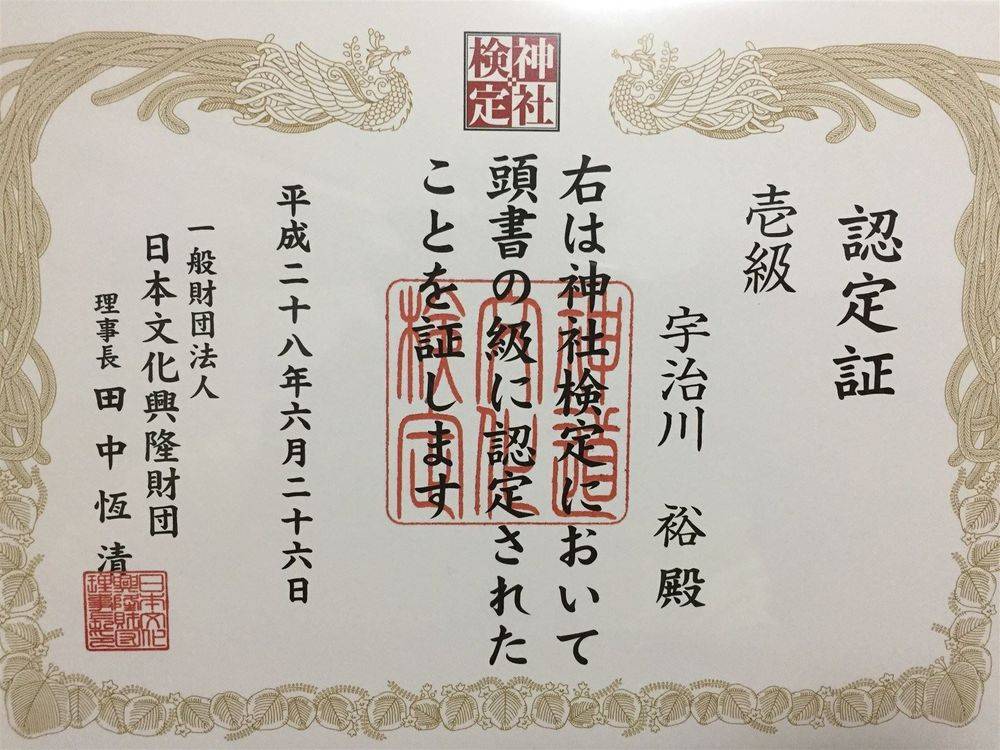 神社
検定
認定証
壱級
宇治川 裕殿
右は神社検定において
頭書の級に認定された
ことを証します
平成二十八年六月二十六日
一般財団法人
日本文化興隆財団
理事長 田中恆清
神道
文化
検定
日本文化
興隆財団
理事長印